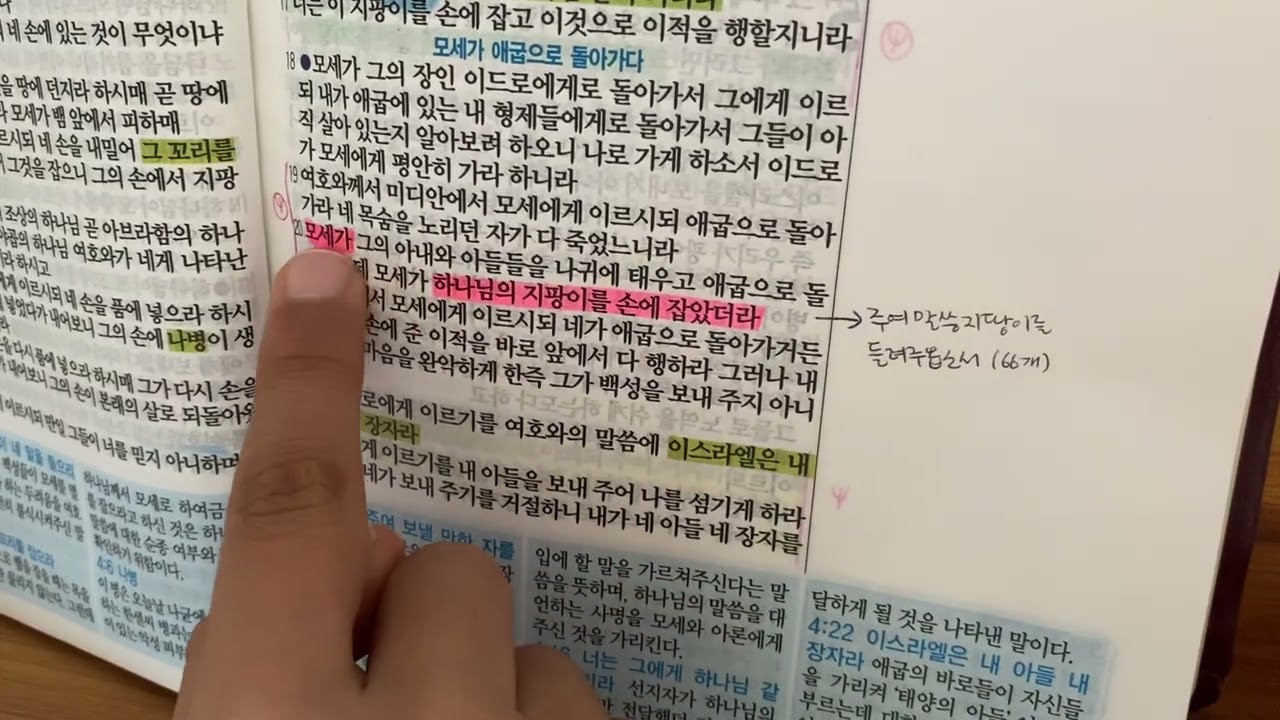 네 손에 있는 것이 무엇이냐
을 땅에 던지라 하시매 곧 땅에
모세가 뱀 앞에서 피하매
르시되 네 손을 내밀어 그 꼬리를
그것을 잡으니 그의 손에서 지팡
조상의 하나님 곧 아브라함의 하나
야곱의 하나님 여호와가 네게 나타난
라 하시고
에게 이르시되 네 손을 품에 넣으라 하시
넣었다가 내어보니 그의 손에 나병이 생
을 다시 품에 넣으라 하시매 그가 다시 손을
내어보니 그의 손이 본래의 살로 되돌아
이르시되 만일 그들이 너를 믿지 아니하며
하나님께서 모세로 하여금
를 잡으라고 하신 것은 하
말씀에 대한 순종 여부와
확인하기 위함이다.
4:6 나병
17 너는 이 지팡이를 손에 잡고 이것으로 이적을 행할지니라
모세가 애굽으로 돌아가다
18 ●모세가 그의 장인 이드로에게로 돌아가서 그에게 이르
되 내가 애굽에 있는 내 형제들에게로 돌아가서 그들이 아
직 살아 있는지 알아보려 하오니 나로 가게 하소서 이드로
가 모세에게 평안히 가라 하니라
19 여호와께서 미디안에서 모세에게 이르시되 애굽으로 돌아
가라 네 목숨을 노리던 자가 다 죽었느니라
20 모세가 그의 아내와 아들들을 나귀에 태우고 애굽으로 돌
모세가 하나님의 지팡이를 손에 잡았더라
모세에게 이르시되 네가 애굽으로 돌아가거든
손에 준 이적을 바로 앞에서 다 행하라 그러나 내
마음을 완악하게 한즉 그가 백성을 보내 주지 아니
로에게 이르기를 여호와의 말씀에 이스라엘은 내
장자라
게 이르기를 내 아들을 보내 주어 나를 섬기게 하라
네가 보내 주기를 거절하니 내가 네 아들 네 장자를
주여 말씀 지팡이를
들려주옵소서 (66개)
보낼 만한 자를
입에 할 말을 가르쳐주신다는 말
씀을 뜻하며, 하나님의 말씀을 대
언하는 사명을 모세와 아론에게
주신 것을 가리킨다.
너는 그에게 하나님 같
선지자가 하나님의
달하게 될 것을 나타낸 말이다.
4:22 이스라엘은 내 아들 내
장자라 애굽의 바로들이 자신들
을 가리켜 '태양의 아들'